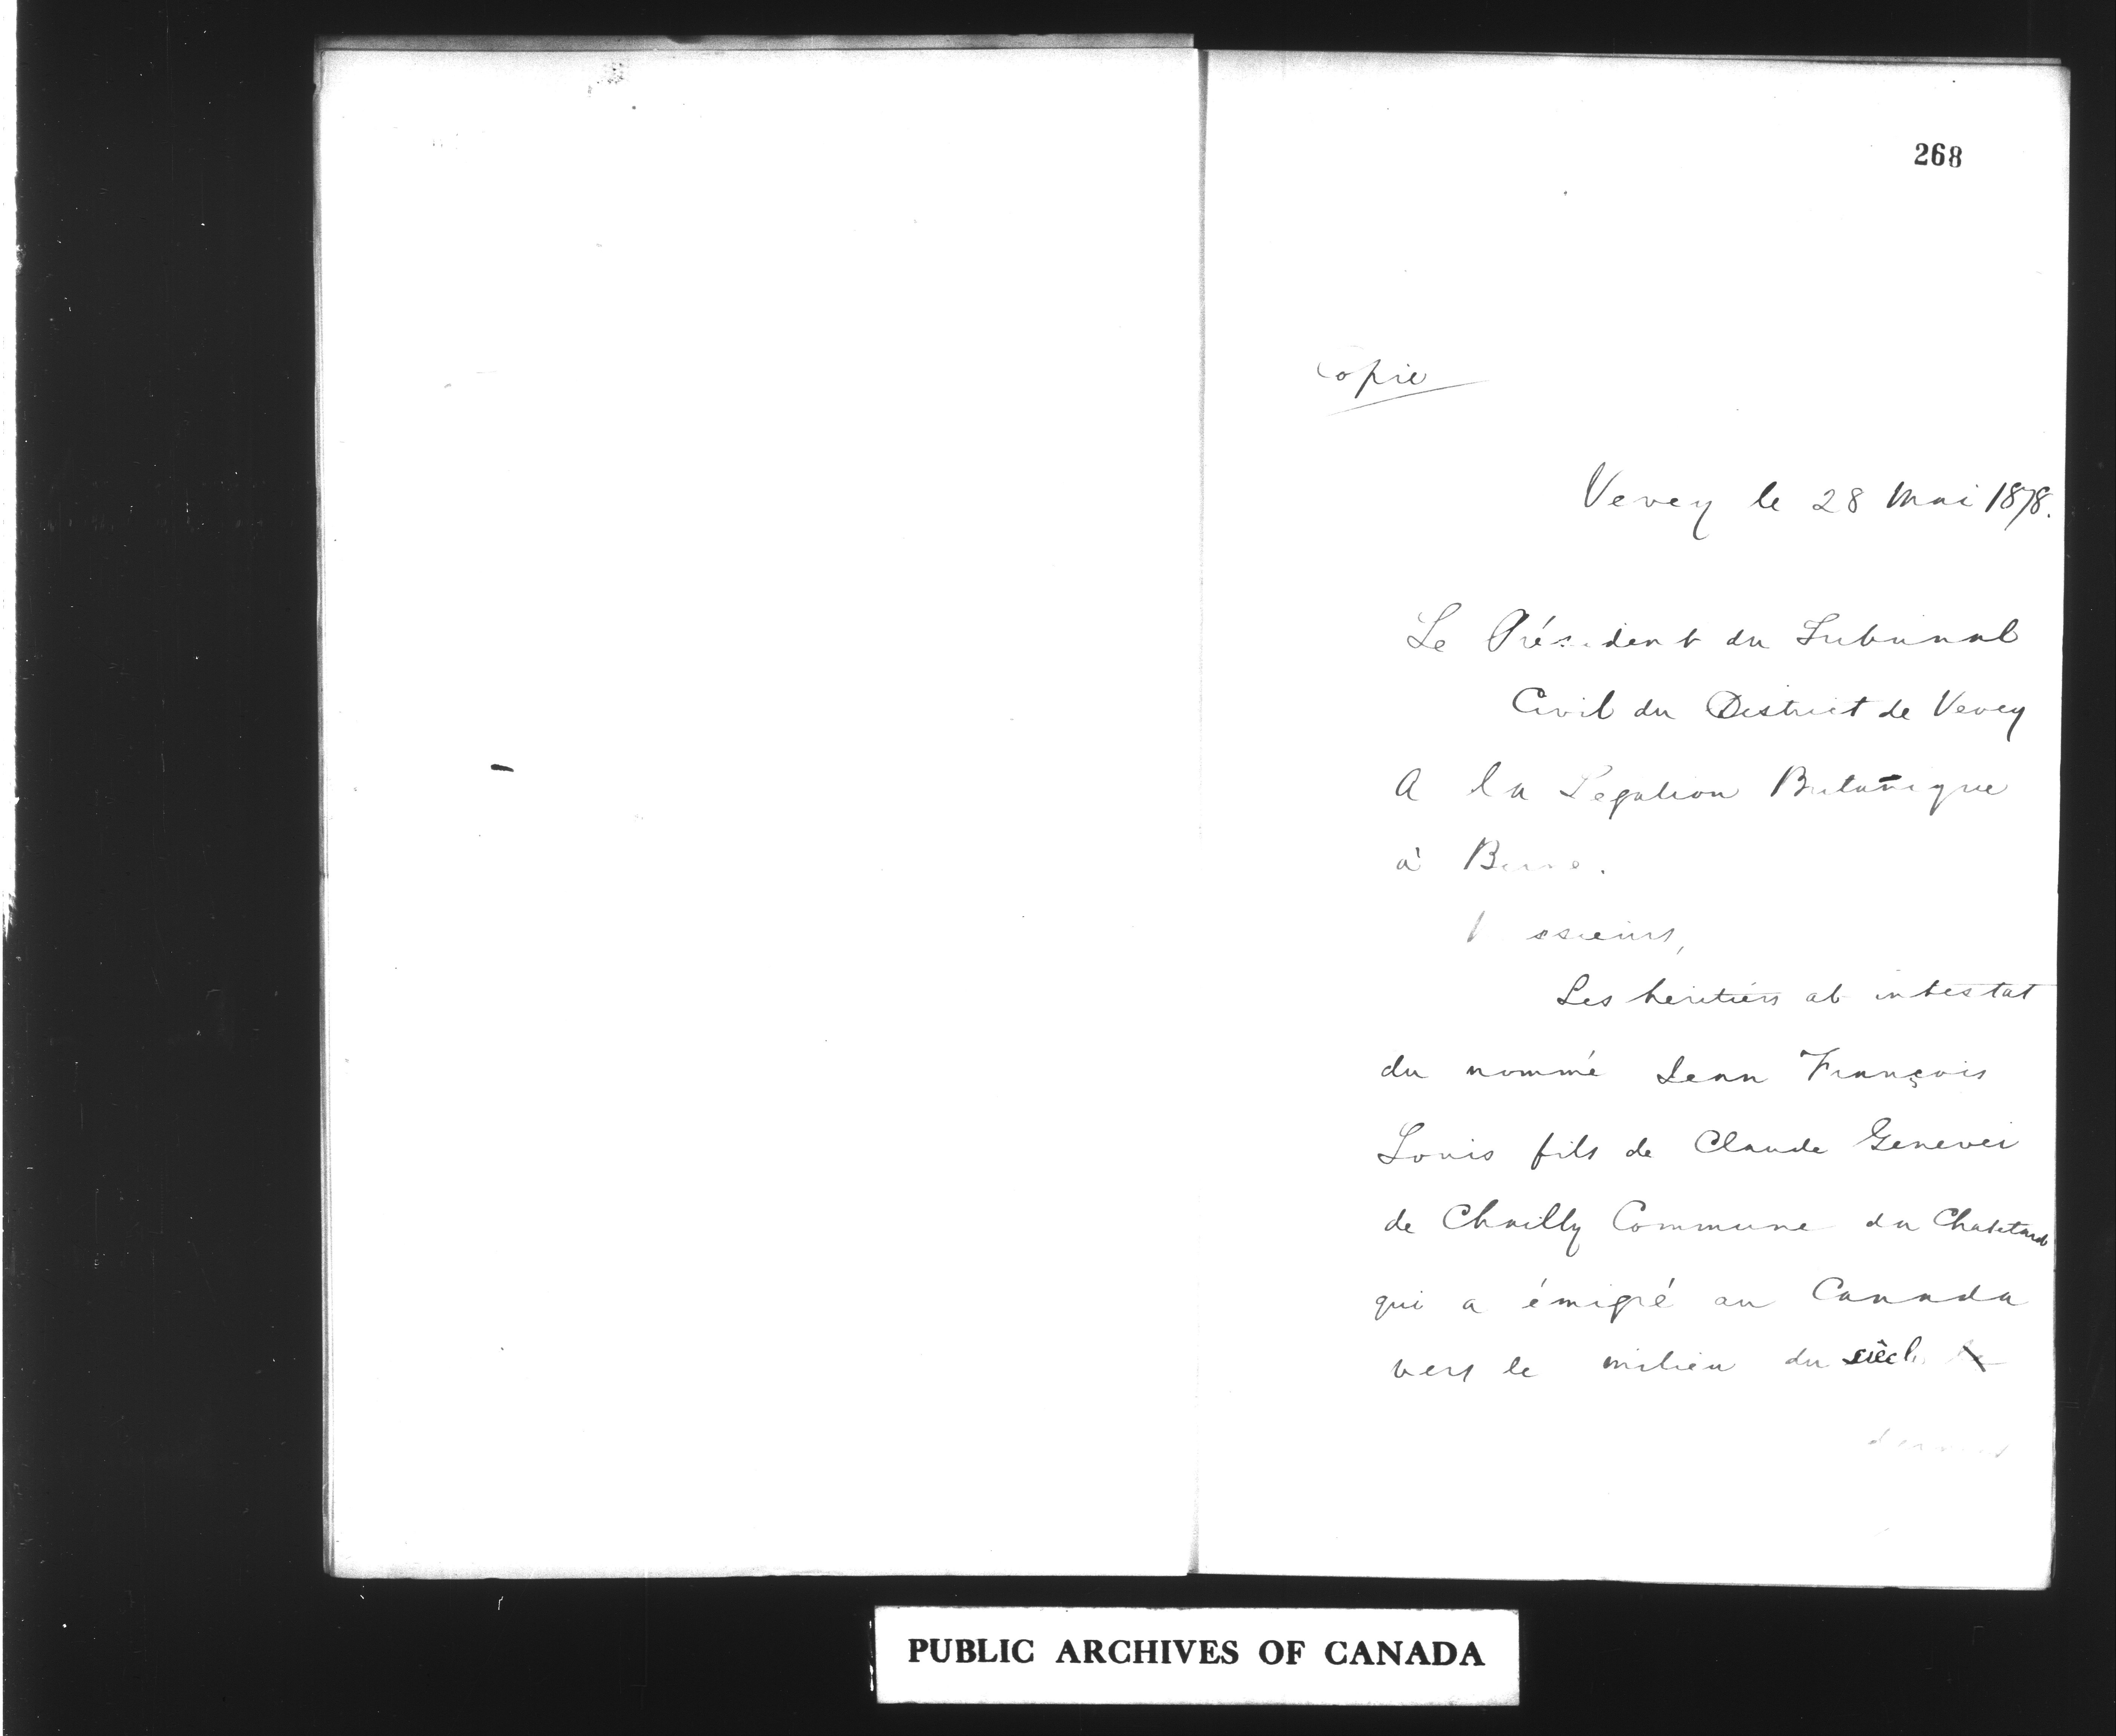 268
Copie
Vevey le 28 Mai 1878.
Le Président du Tribunal
Civil du District de Vevey
A la Legation Britanique
à Berne.
Messieurs,
Les héritiers ab intestat
du nommé Jean François
Louis fils de Claude Genevei
de Chailly Commune du Chatetard
qui a émigré au Canada
vers le milieu du siècle
dernier
PUBLIC ARCHIVES OF CANADA